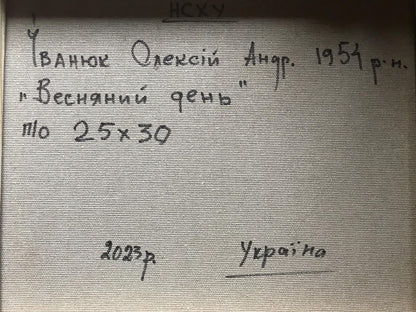 НСХУ
Іванюк Олексій Андр. 1954 р.н.
„Весняний день"
п/о 25х30
2023р.
Україна